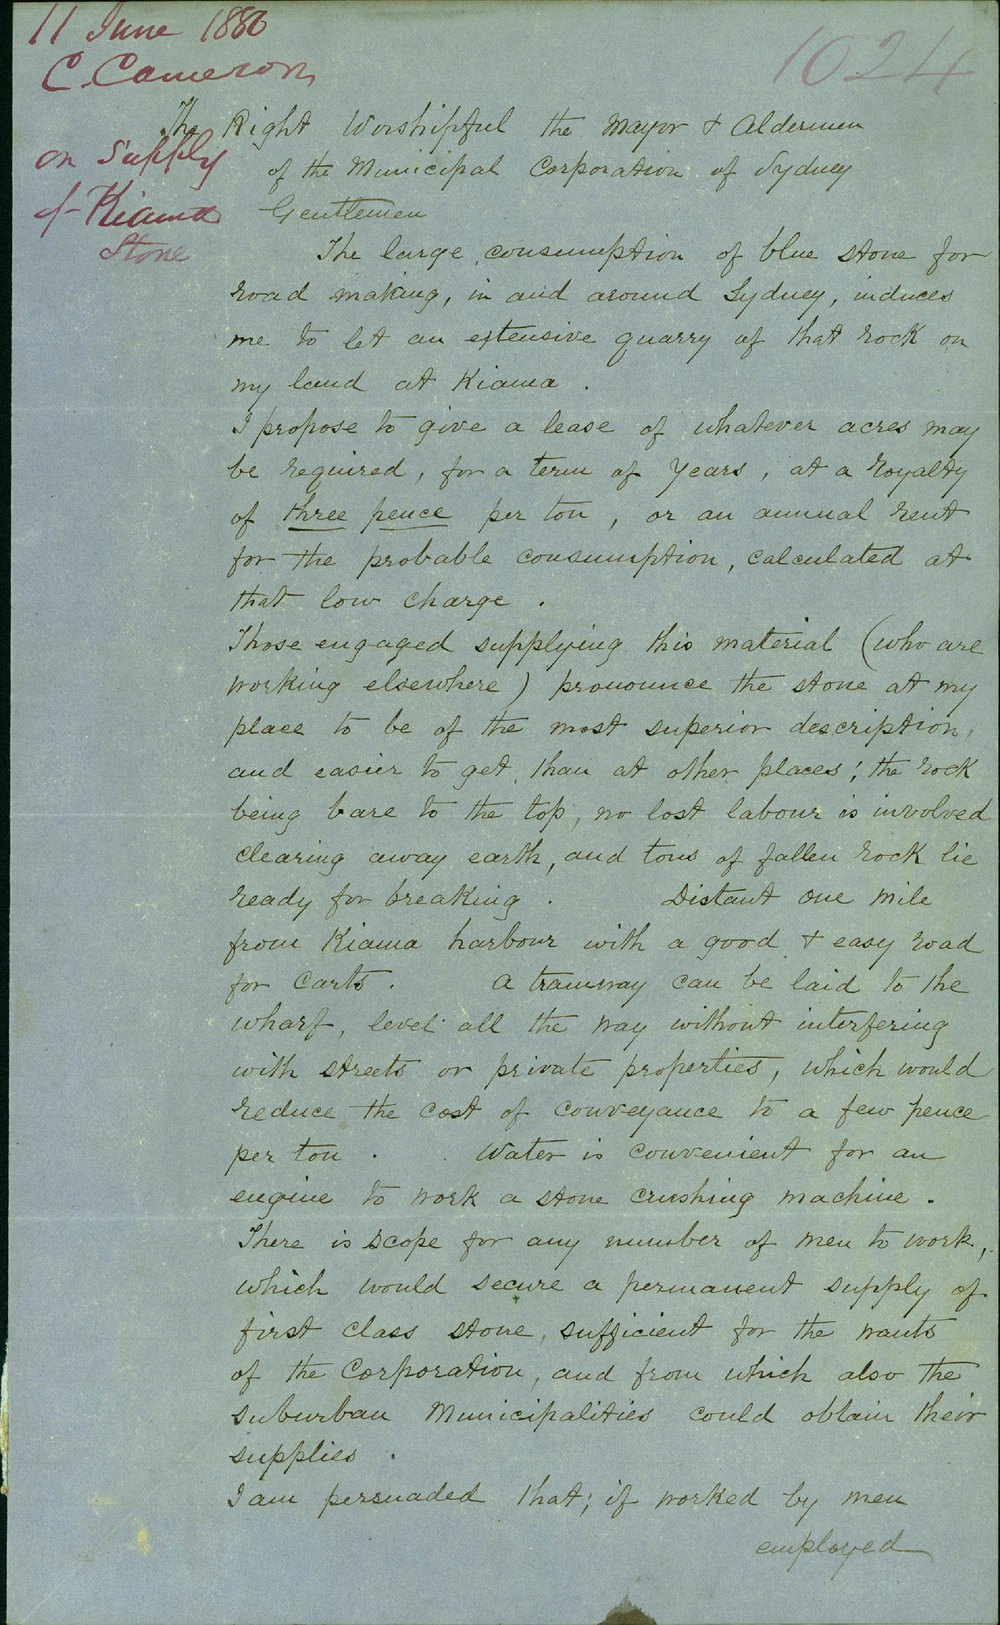 11 June 1880
C. Cameron
1024
The Right Worshipful the Mayor & Aldermen
on Supply
of the Municipal Corporation of Sydney
of Kiama
Gentlemen
Stone
The large consumption of blue stone for
road making, in and around Sydney, induces
me to let an extensive quarry of that rock on
my land at Kiama.
I propose to give a lease of whatever acres may
be required, for a term of years, at a royalty
of three pence per ton, or an annual rent
for the probable consumption, calculated at
that low charge.
Those engaged supplying this material (who are
working elsewhere) pronounce the stone at my
place to be of the most superior description,
and easier to get than at other places; the rock
being bare to the top, no lost labour is involved
clearing away earth, and tons of fallen rock lie
ready for breaking. Distant one mile
from Kiama harbour with a good & easy road
for carts. A tramway can be laid to the
wharf, level all the way without interfering
with streets or private properties, which would
reduce the cost of conveyance to a few pence
per ton. Water is convenient for an
engine to work a stone crushing machine.
There is scope for any number of men to work,
which would secure a permanent supply of
first class stone, sufficient for the wants
of the Corporation, and from which also the
suburban Municipalities could obtain their
supplies.
I am persuaded that; if worked by men
employed